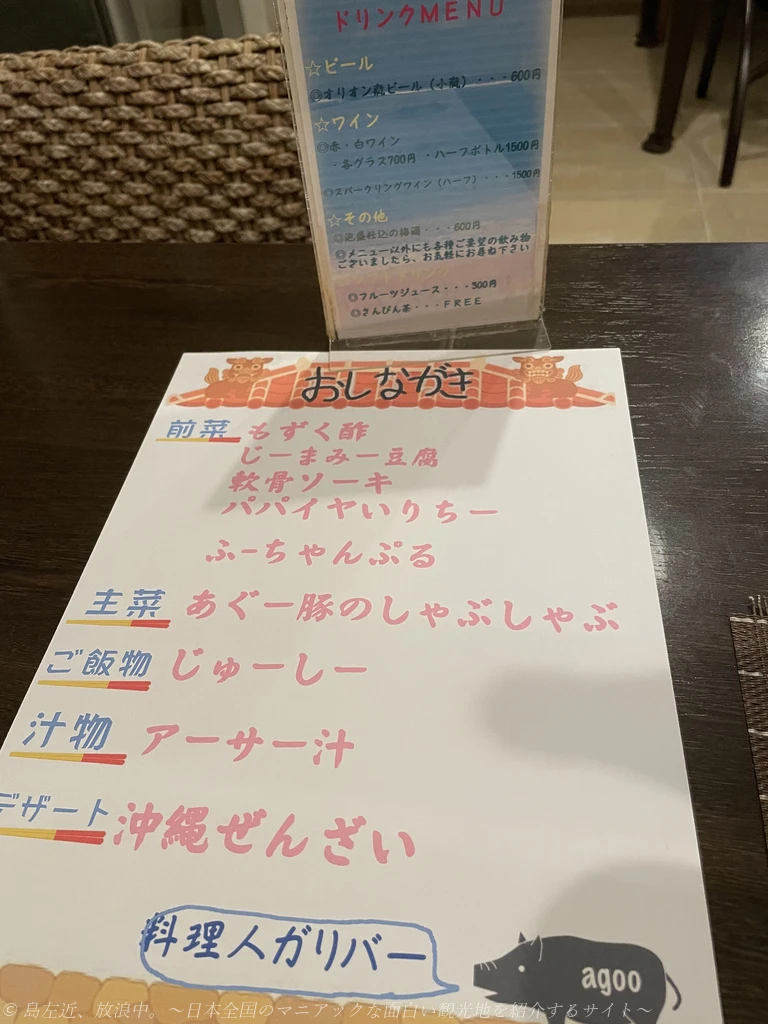 ドリンクMENU
☆ビール
◎オリオン瓶ビール（小瓶）・・・600円
☆ワイン
◎赤・白ワイン
・各グラス700円 ・ハーフボトル1500円
◎スパークリングワイン（ハーフ）・・・1500円
☆その他
◎泡盛仕込の梅酒・・・600円
◎メニュー以外にも各種ご要望の飲み物
ございましたら、お気軽にお尋ね下さい
◎フルーツジュース・・・300円
◎さんぴん茶・・・FREE
おしながき
前菜 もずく酢
じーまみー豆腐
軟骨ソーキ
パパイヤいりちー
ふーちゃんぷる
主菜 あぐー豚のしゃぶしゃぶ
ご飯物 じゅーしー
汁物 アーサー汁
デザート 沖縄ぜんざい
料理人ガリバー
agoo
© 島左近、放浪中。～日本全国のマニアックな面白い観光地を紹介するサイト～